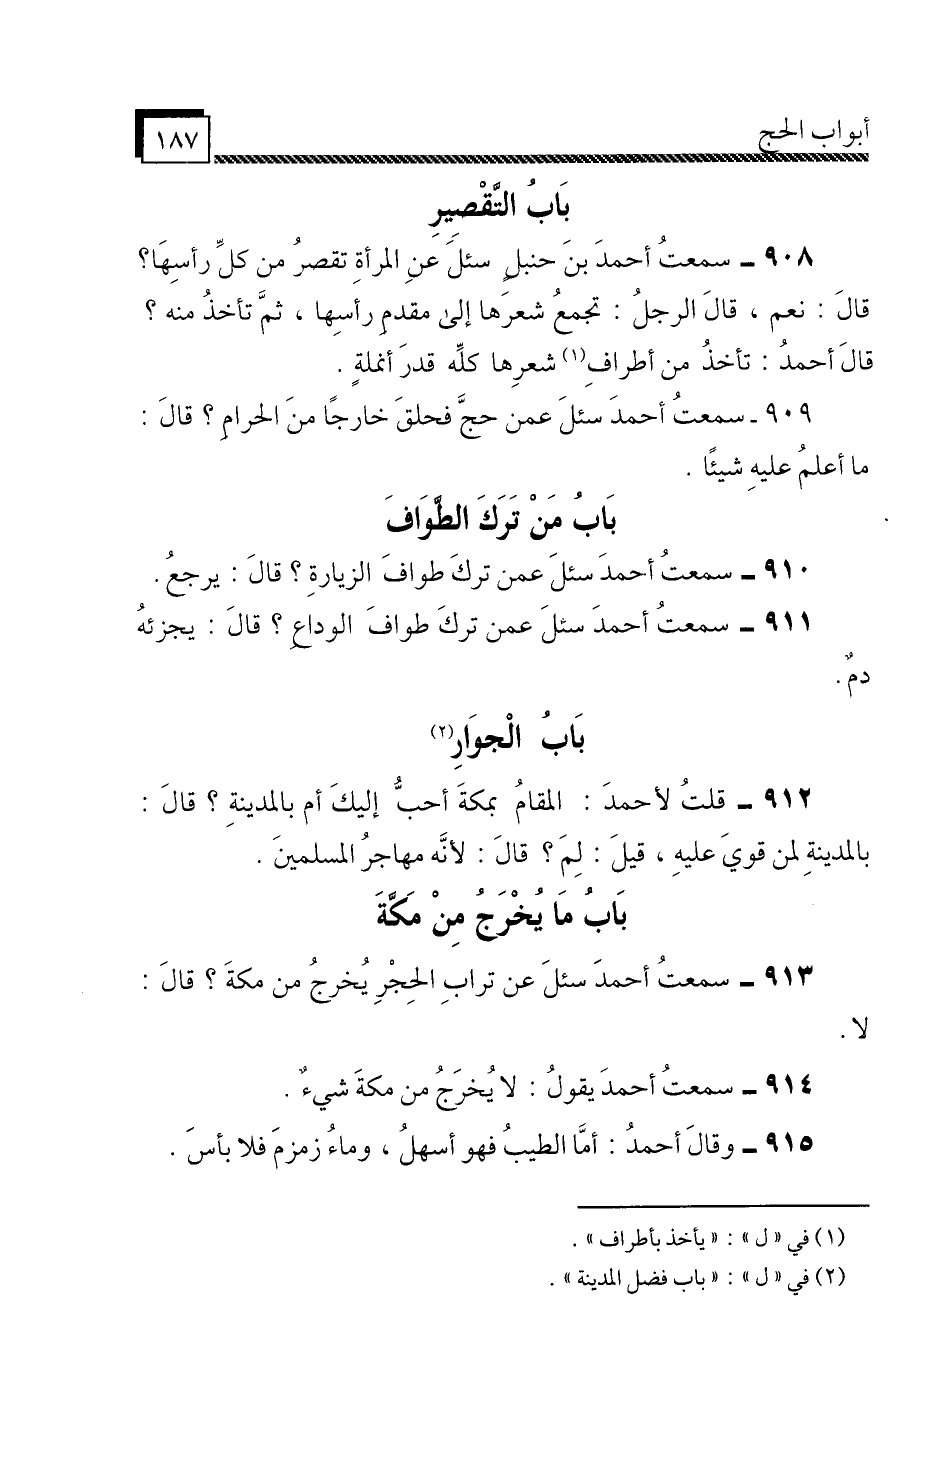 أبواب الحج
١٨٧
بَابُ التَّقْصِيرِ
٩٠٨ ـ سمعتُ أحمدَ بنَ حنبلٍ سئلَ عنِ المرأةِ تقصرُ من كلِّ رأسِهَا؟
قالَ : نعم ، قالَ الرجلُ : تجمعُ شعرَها إلىٰ مقدمِ رأسِها ، ثمَّ تأخذُ منه ؟
قالَ أحمدُ : تأخذُ من أطرافِ(١) شعرِها كلِّه قدرَ أنملةٍ .
٩٠٩ ـ سمعتُ أحمدَ سئلَ عمن حجَّ فحلقَ خارجًا منَ الحرامِ ؟ قالَ :
ما أعلمُ عليهِ شيئًا .
بَابُ مَنْ تَرَكَ الطَّوَافَ
٩١٠ ـ سمعتُ أحمدَ سئلَ عمن تركَ طوافَ الزيارةِ ؟ قالَ : يرجعُ .
٩١١ ـ سمعتُ أحمدَ سئلَ عمن تركَ طوافَ الوداعِ ؟ قالَ : يجزئهُ
دمٌ .
بَابُ الْجِوَارِ(٢)
٩١٢ ـ قلتُ لأحمدَ : المقامُ بمكةَ أحبُّ إليكَ أم بالمدينةِ ؟ قالَ :
بالمدينةِ لمن قويَ عليهِ ، قيلَ : لِمَ ؟ قالَ : لأنَّه مهاجرُ المسلمينَ .
بَابُ مَا يُخْرَجُ مِنْ مَكَّةَ
٩١٣ ـ سمعتُ أحمدَ سئلَ عن ترابِ الحِجْرِ يُخرجُ من مكةَ ؟ قالَ :
لا .
٩١٤ ـ سمعتُ أحمدَ يقولُ : لا يُخرَجُ من مكةَ شيءٌ .
٩١٥ ـ وقالَ أحمدُ : أمَّا الطيبُ فهو أسهلُ ، وماءُ زمزمَ فلا بأسَ .
(١) في « ل » : « يأخذ بأطراف » .
(٢) في « ل » : « باب فضل المدينة » .